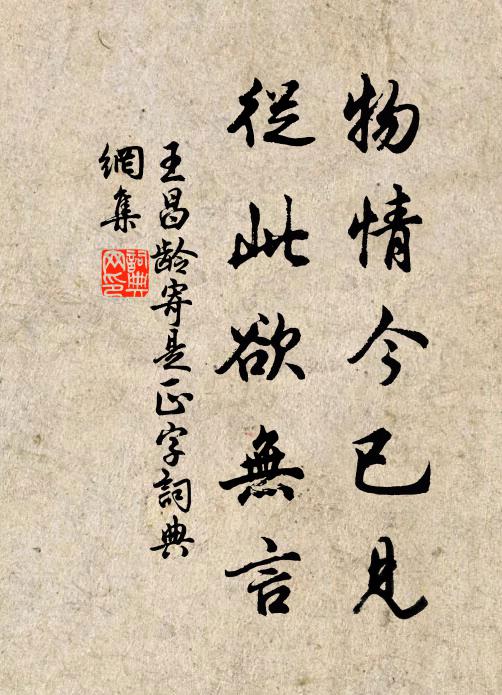 物情今已見
從此欲無言
王昌龄寄是正字詞典
網集
詞典
网印